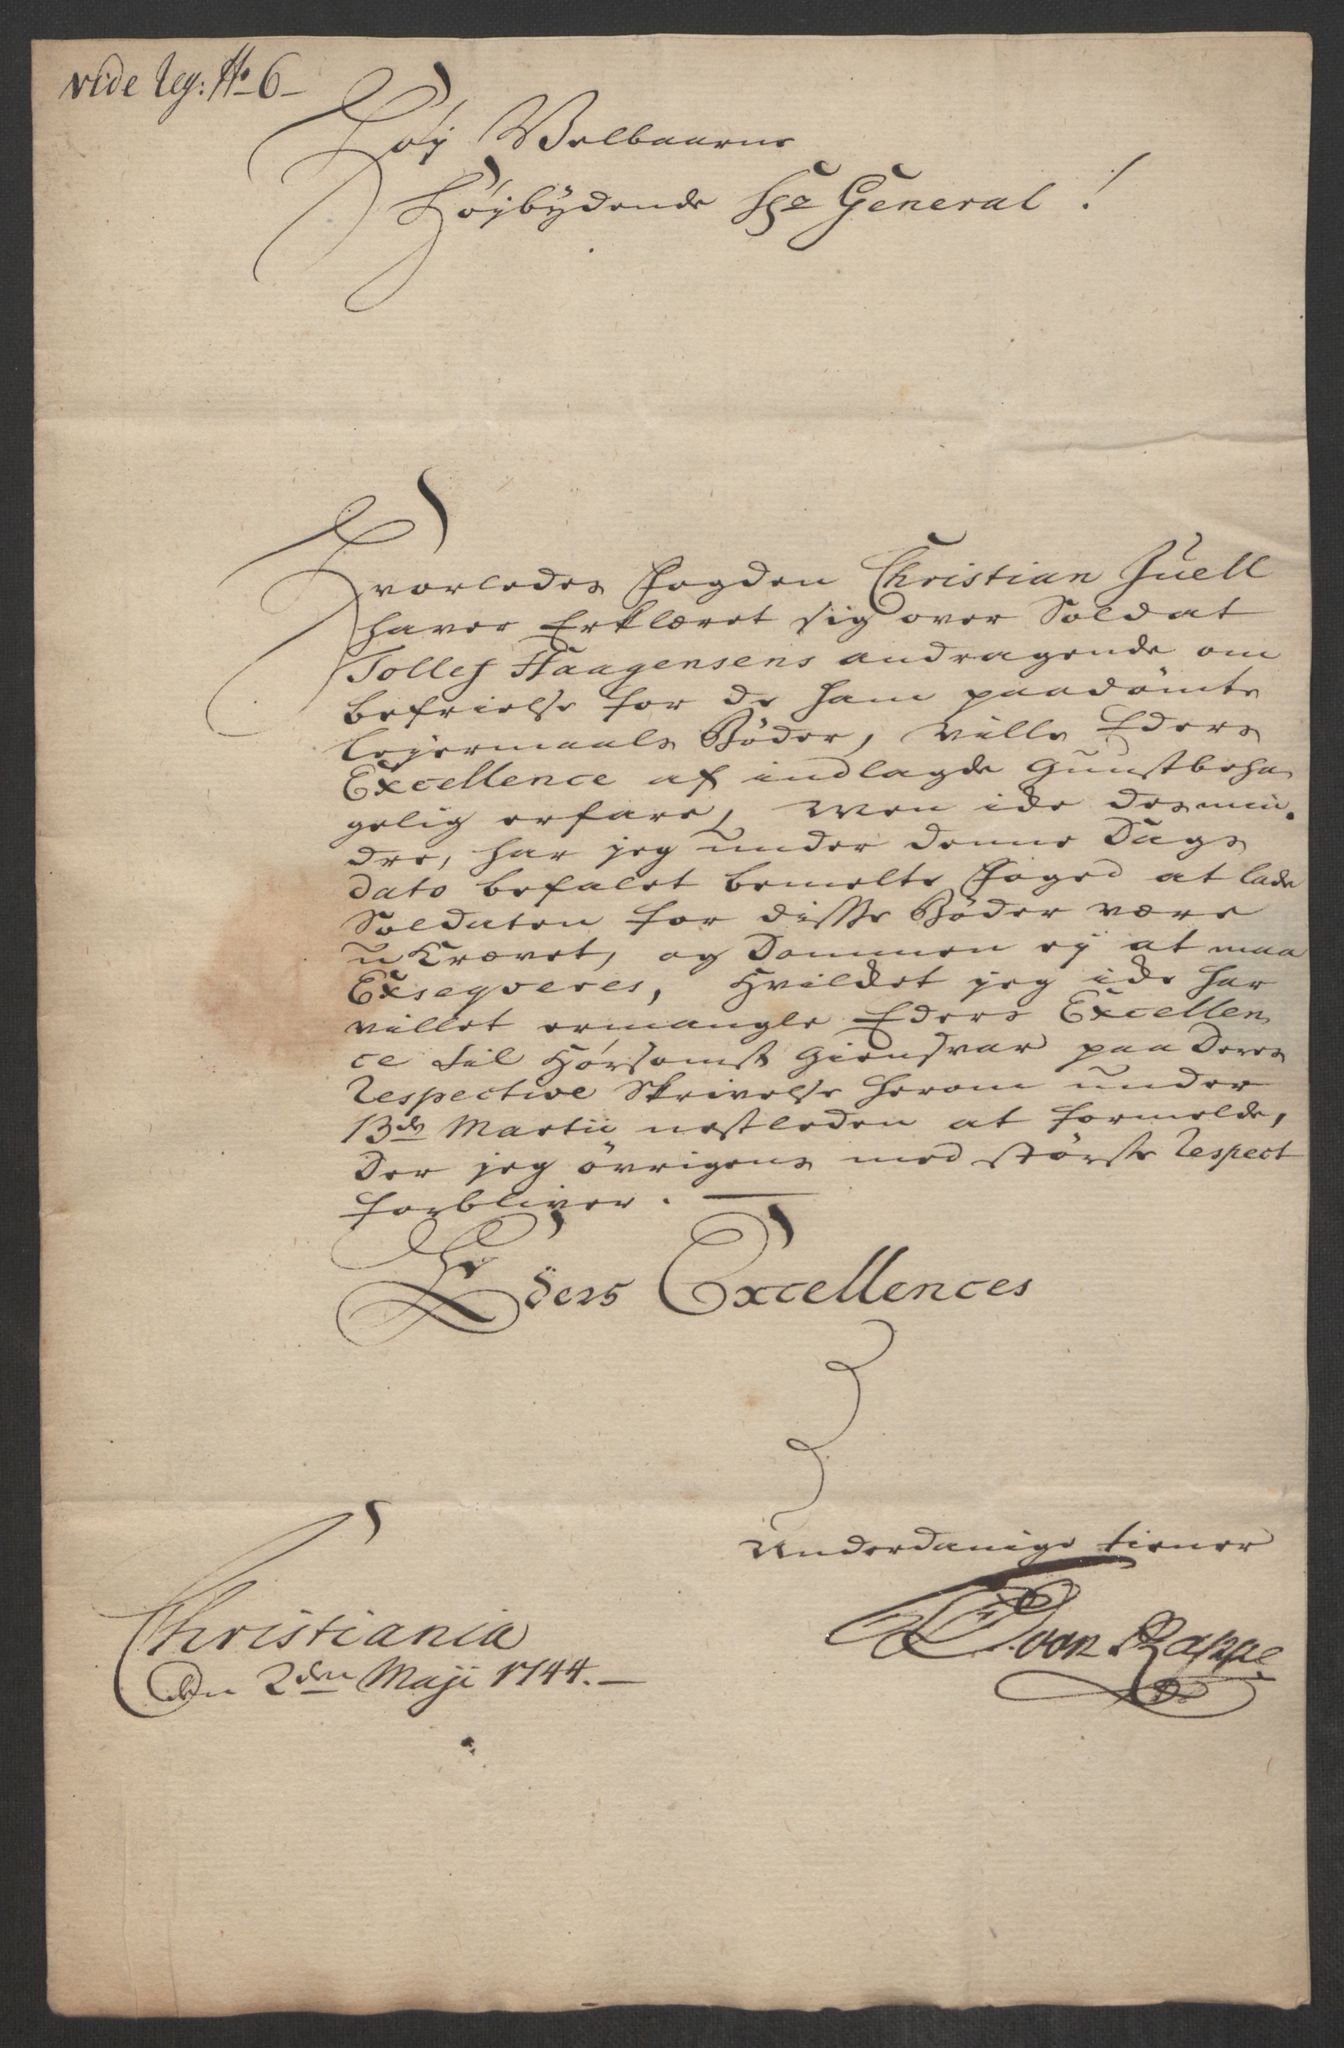 vide Reg: No 6
Høÿ Velbaarne
Højbÿdende Hr General!
Hvorledes Fogden Christian Juell
haver Erklæret sig over Soldat
Tollef Haagensens andragende om
befrielse for de ham paadömte
lejermaals Bøder, ville Eders
Excellence af indlagde Gunstbeha
gelig erfare, Men icke desmin¬
dre, har jeg under denne Dags
dato befalet bemelte Foged at lade
Soldaten for disse Bøder være
u Krævet, og Dommen ej at maa
Exseqveres, hvildet jeg icke har
villet ermangle Eders Excellen
ce til Hørsomst Giensvar paa Deres
Respective Skrivelse herom under
13de Martii nestleden at formelde,
Der jeg övrigens med største Respect
forbliver.
Eders Excellences
Underdanige tiener
Christiania
den 2den Maji 1744.
von Rappe